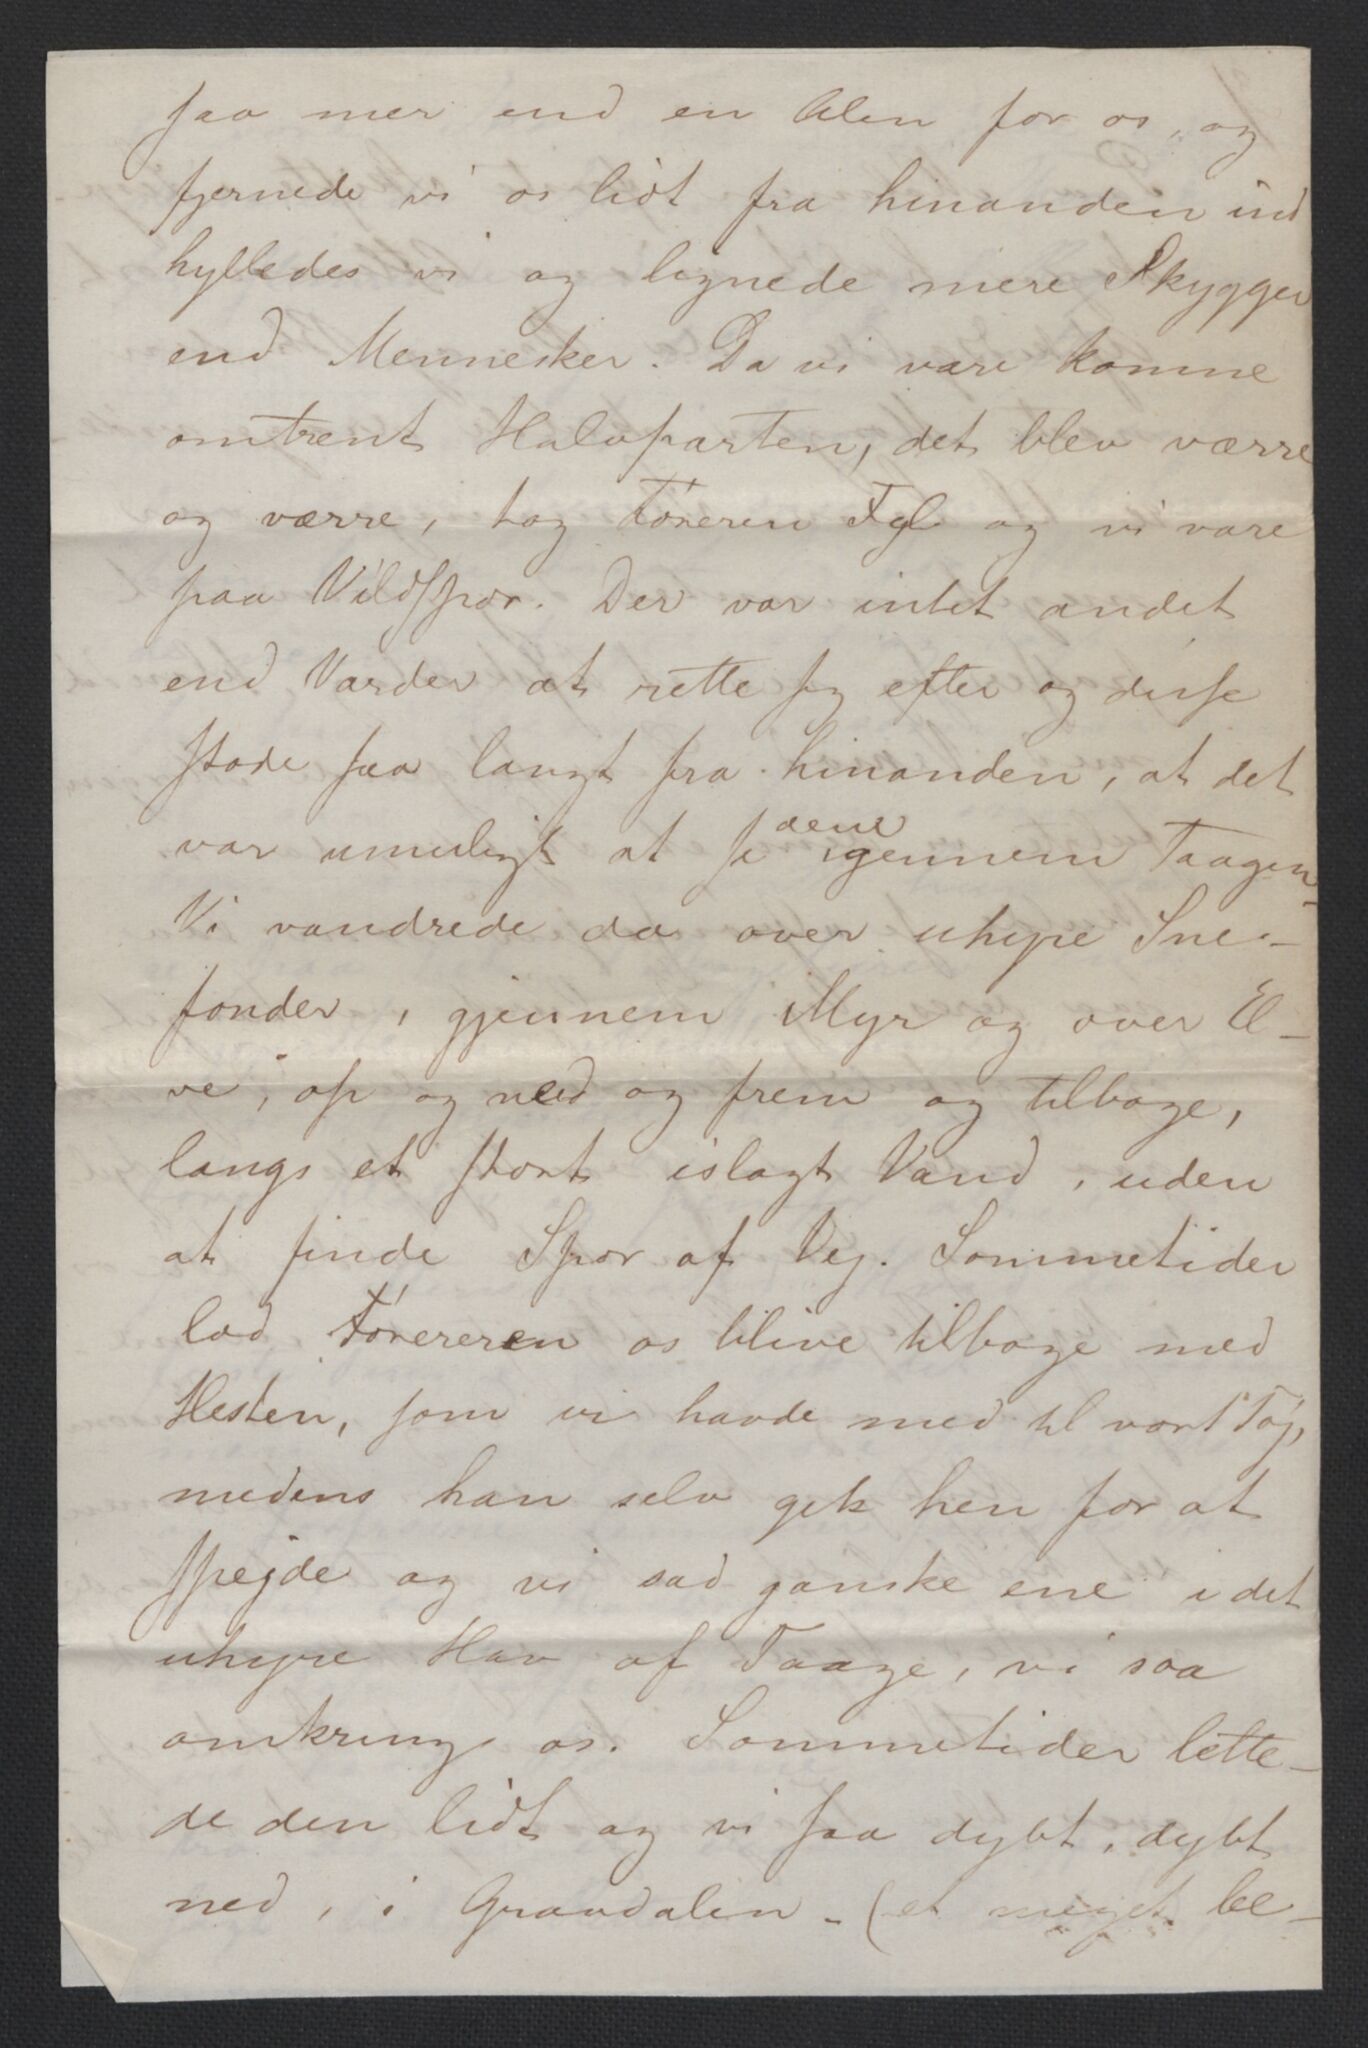 saa mer end en Alen for os, og
fjernede vi os lidt fra hinanden ind
hylledes vi og lignede mere Skygger
end Mennesker. Da vi vare komne
omtrent Halvparten, det blev værre
og værre, tog Föreren Fejl og vi vare
paa Vildspor. Der var intet andet
end Varder at rette sig efter og disse
stode saa langt fra hinanden, at det
var umuligt at se dem igennem Taagen.
Vi vandrede da over uhyre Sne-
fonder, gjennem Myr og over El-
ve, op og ned og frem og tilbage,
langs et stort islagt Vand, uden
at finde Spor af Vej. Sommetider
lod Förereren os blive tilbage med
Hesten, som vi havde med til vort Töj,
medens han selv gik hen for at
spejde og vi sad ganske ene i det
uhyre Hav af Taage, vi saa
omkring os. Sommetider lette-
de den lidt og vi saa dybt, dybt
ned, i Gravdalen - (et meget be-